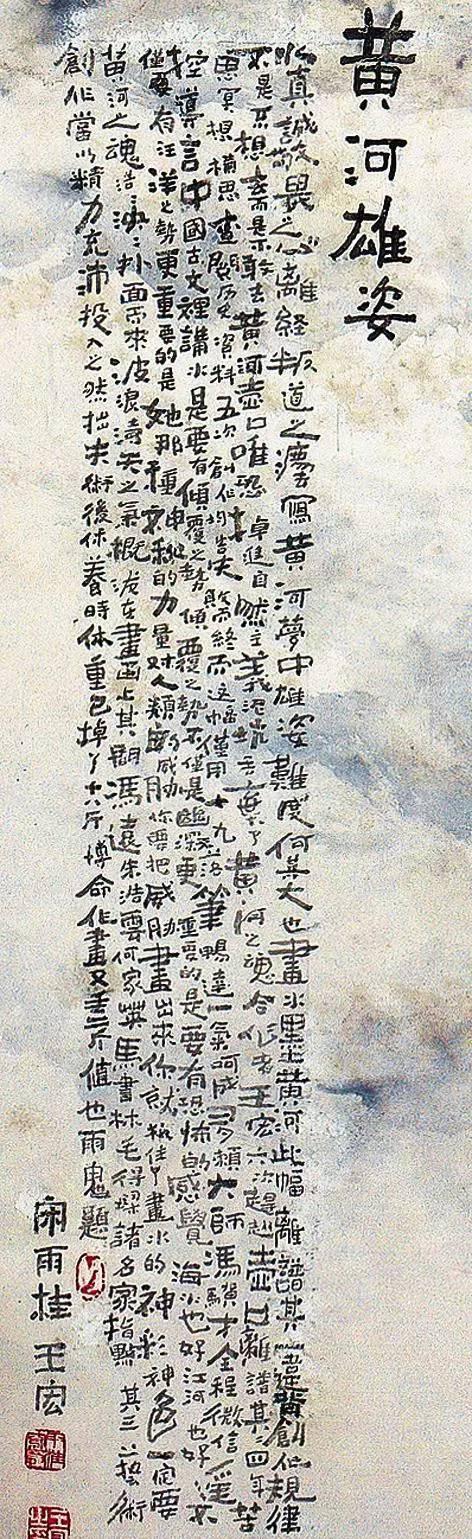 黄河雄姿
以真誠敬畏之心離經叛道之 寫黄河夢中雄姿難度何其大也畫水墨黄河此幅離譜其一違背創作規律
不是不想去而是不敢去黄河壺口唯恐掉進自然主義泥 丢棄了黄河之魂合作者王宏六次趕赴壺口離譜其二四年苦
思冥想構思查閱历史資料五次創作均告失敗而終而這幅僅用十九 落筆暢達一氣呵成 賴大師馮驥才全程微信
控導言中國古文裡講水是要有傾覆之勢傾覆之勢不僅是幽深更重要的是要有恐怖的感覺海水也好江河也好 
僅要有汪洋之勢更重要的是她那種神秘的力量對人類的威脅你要把威脅畫出來你就抓住了畫水的神彩神色一個要
黄河之魂浩浩 扑面而來波浪濤天之氣概 在畫面上其間馮遠朱浩雲何家英馬書林毛得 諸名家指點其三藝術
創作當以精力充沛投入之然拙夫術後休養時体重已掉了十六斤搏命作畫又 不值也雨鬼題
宋雨桂王宏